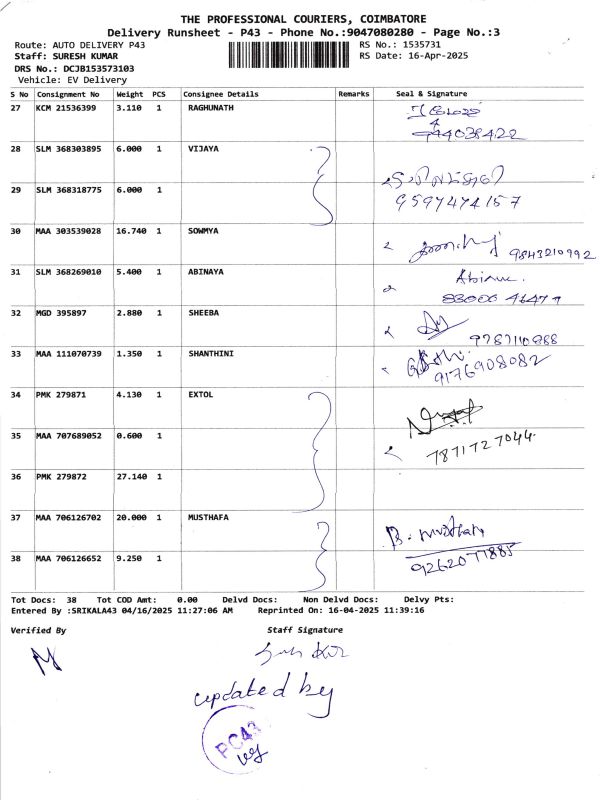 THE PROFESSIONAL COURIERS, COIMBATORE
Delivery Runsheet - P43 - Phone No.:9047080280 - Page No.:3
Route: AUTO DELIVERY P43 RS No.: 1535731
Staff: SURESH KUMAR RS Date: 16-Apr-2025
DRS No.: DCJB153573103
Vehicle: EV Delivery
S No Consignment No Weight PCS Consignee Details Remarks Seal & Signature
27 KCM 21536399 3.110 1 RAGHUNATH
28 SLM 368303895 6.000 1 VIJAYA
29 SLM 368318775 6.000 1
9597474157
30 MAA 303539028 16.740 1 SOWMYA
9843210992
31 SLM 368269010 5.400 1 ABINAYA
32 MGD 395897 2.880 1 SHEEBA
33 MAA 111070739 1.350 1 SHANTHINI
9176908082
34 PMK 279871 4.130 1 EXTOL
35 MAA 707689052 0.600 1
7871727044
36 PMK 279872 27.140 1
37 MAA 706126702 20.000 1 MUSTHAFA
38 MAA 706126652 9.250 1
Tot Docs: 38 Tot COD Amt: 0.00 Delvd Docs: Non Delvd Docs: Delvy Pts:
Entered By :SRIKALA43 04/16/2025 11:27:06 AM Reprinted On: 16-04-2025 11:39:16
Verified By Staff Signature
updated by
PC43